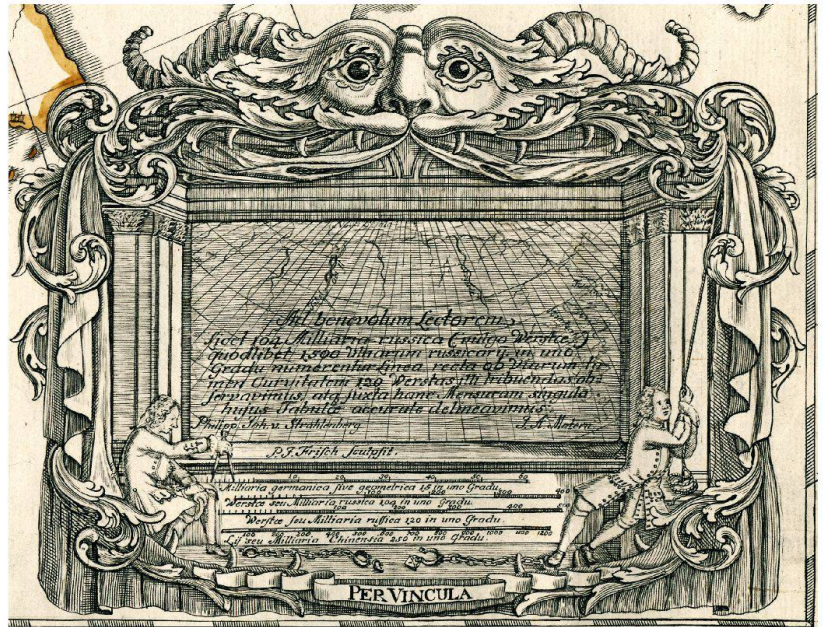 Ad benevolum Lectorem,
licet 104 Milliaria russica (vulgo Werstæ,)
quodlibet 1500 Ulnarum russicarū, in uno
Gradu numerentur linea recta ob Viarum ta-
men Curvitatem 120 Werstas tribuendas ob-
servavimus, atq juxta hanc Mensuram singula
hujus Tabulæ accurate delineavimus.
Philipp Joh. v Strahlenberg J. A. Matern
P. J. Frisch sculpsit.
10 20 30 40 50 60
Milliaria germanica sive geometrica 15 in uno Gradu.
Werstæ seu Milliaria russica 104 in uno Gradu.
Werstæ seu Milliaria russica 120 in uno Gradu.
100 200 300 400 500 600 700 800 900 1000 1100 1200
Li seu Milliaria Chinensia 250 in uno Gradu.
PER VINCULA